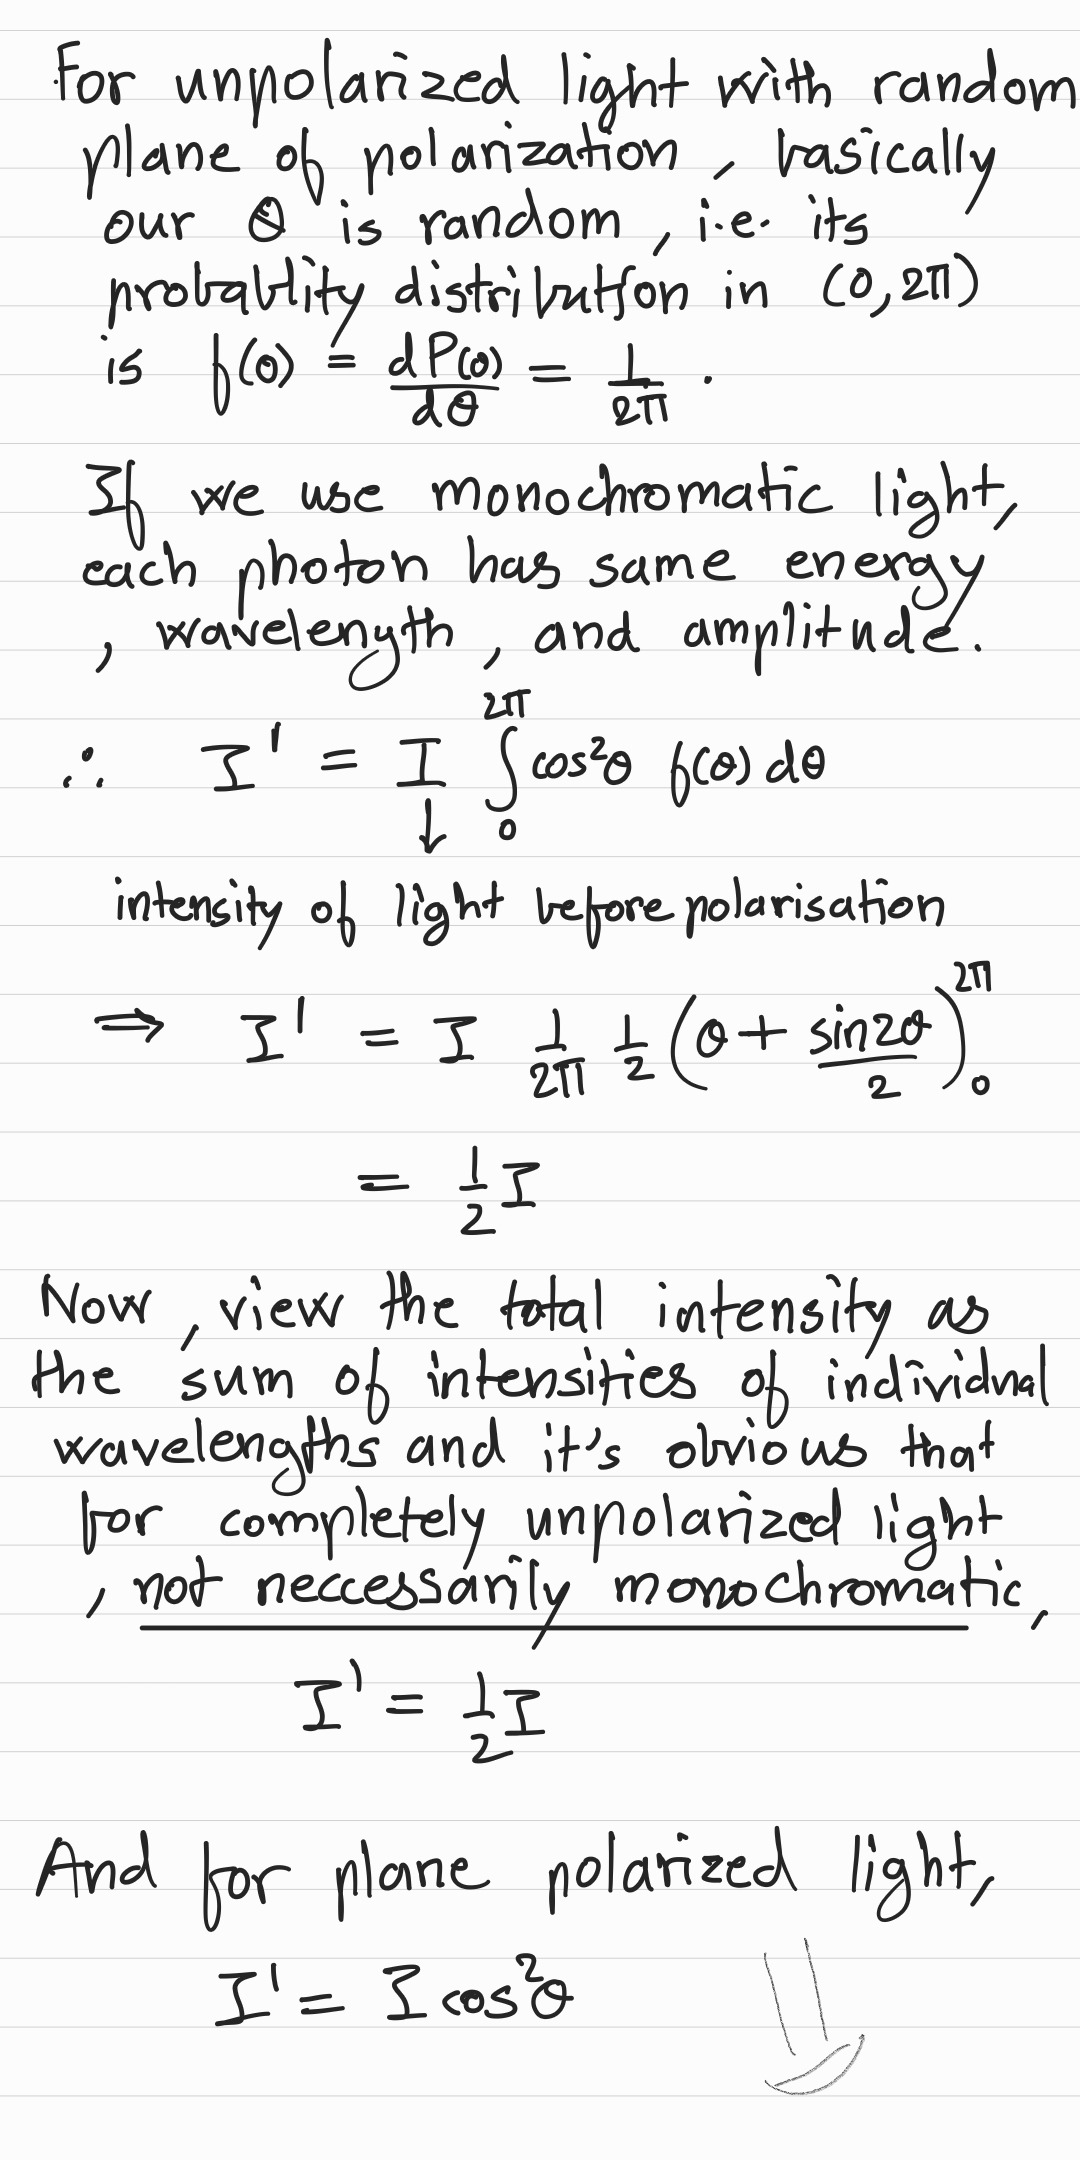 For unpolarized light with random
plane of polarization, basically
our θ is random, i.e. its
probablity distribution in (0, 2π)
is f(θ) = dP(θ)/dθ = 1/2π .
If we use monochromatic light,
each photon has same energy
, wavelength, and amplitude.
∴ I' = I ∫₀^2π cos²θ f(θ) dθ
↓
intensity of light before polarisation
⇒ I' = I 1/2π 1/2 (θ + sin2θ/2)₀^2π
= 1/2 I
Now, view the total intensity as
the sum of intensities of individual
wavelengths and it's obvious that
for completely unpolarized light
, not neccessarily monochromatic,
I' = 1/2 I
And for plane polarized light,
I' = I cos²θ